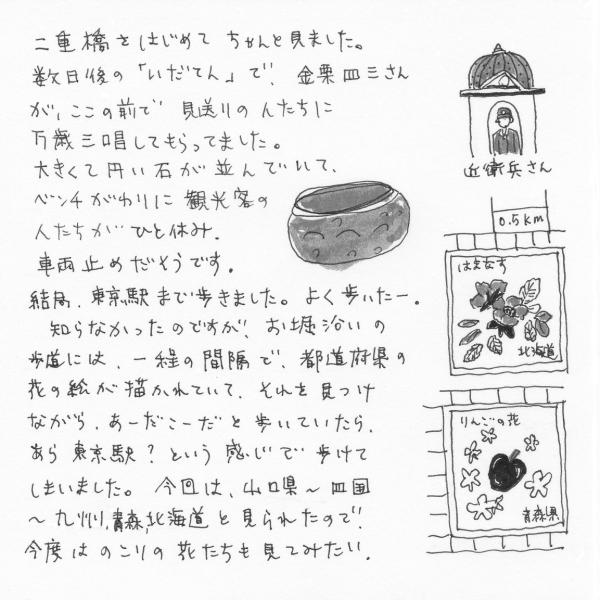 二重橋をはじめて ちゃんと見ました。
数日後の「いだてん」で、金栗四三さん
が、ここの前で 見送りの人たちに
万歳三唱してもらってました。
大きくて円い石が並んでいて、
ベンチがわりに 観光客の
人たちが ひと休み。
車両止めだそうです。
結局、東京駅まで歩きました。よく歩いたー。
知らなかったのですが、お堀沿いの
歩道には、一程の間隔で、都道府県の
花の絵が描かれていて、それを見つけ
ながら、あーだこーだと歩いていたら、
あら東京駅?という感じで歩けて
しまいました。今回は、山口県〜四国
〜九州、青森、北海道と見られたので、
今度はのこりの花たちも見てみたい。
近衛兵さん
0.5km
はまなす
北海道
りんごの花
青森県